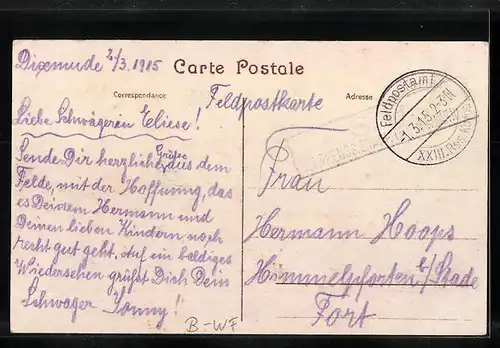 Dixmude 2/3. 1915
Carte Postale
Correspondance
Adresse
Feldpostkarte
Feldpostamt
-1.3.15.2-3N
XXIII. Res.
Liebe Schwägerin Eliese!
Sende Dir herzliche Grüße aus dem
Felde, mit der Hoffnung, das
es Deinem Hermann und
Deinen lieben Kindern noch
recht gut geht, Auf ein baldiges
Wiedersehen grüßt Dich Dein
Schwager Jonny!
Frau
Hermann Hoops
Himmelpforten b/Stade
Fort
B-WF